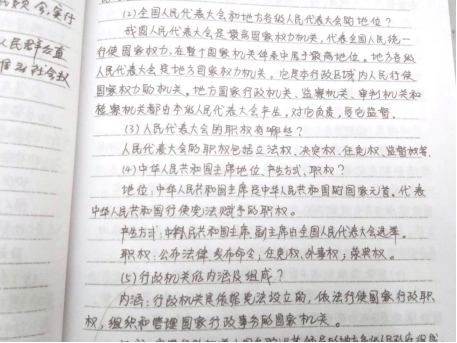 (2)全国人民代表大会和地方各级人民代表大会的地位?
我国人民代表大会是最高国家权力机关,代表全国人民统一
行使国家权力,在整个国家机关体系中居于最高地位。地方各级
人民代表大会是地方国家权力机关。它是本行政区域内人民行使
国家权力的机关。地方国家行政机关、监察机关、审判机关和
检察机关都由本级人民代表大会产生,对它负责,受它监督.
(3)人民代表大会的职权有哪些?
人民代表大会的职权包括立法权、决定权、任免权、监督权等.
(4)中华人民共和国主席地位、产生方式、职权?
地位:中华人民共和国主席是中华人民共和国的国家元首。代表
中华人民共和国行使宪法赋予的职权。
产生方式:中华人民共和国主席、副主席由全国人民代表大会选举。
职权:公布法律、发布命令;任免权、外事权;荣典权。
(5)行政机关的内涵及组成?
内涵:行政机关是依据宪法设立的,依法行使国家行政职
权,组织和管理国家行政事务的国家机关。
人民群众直